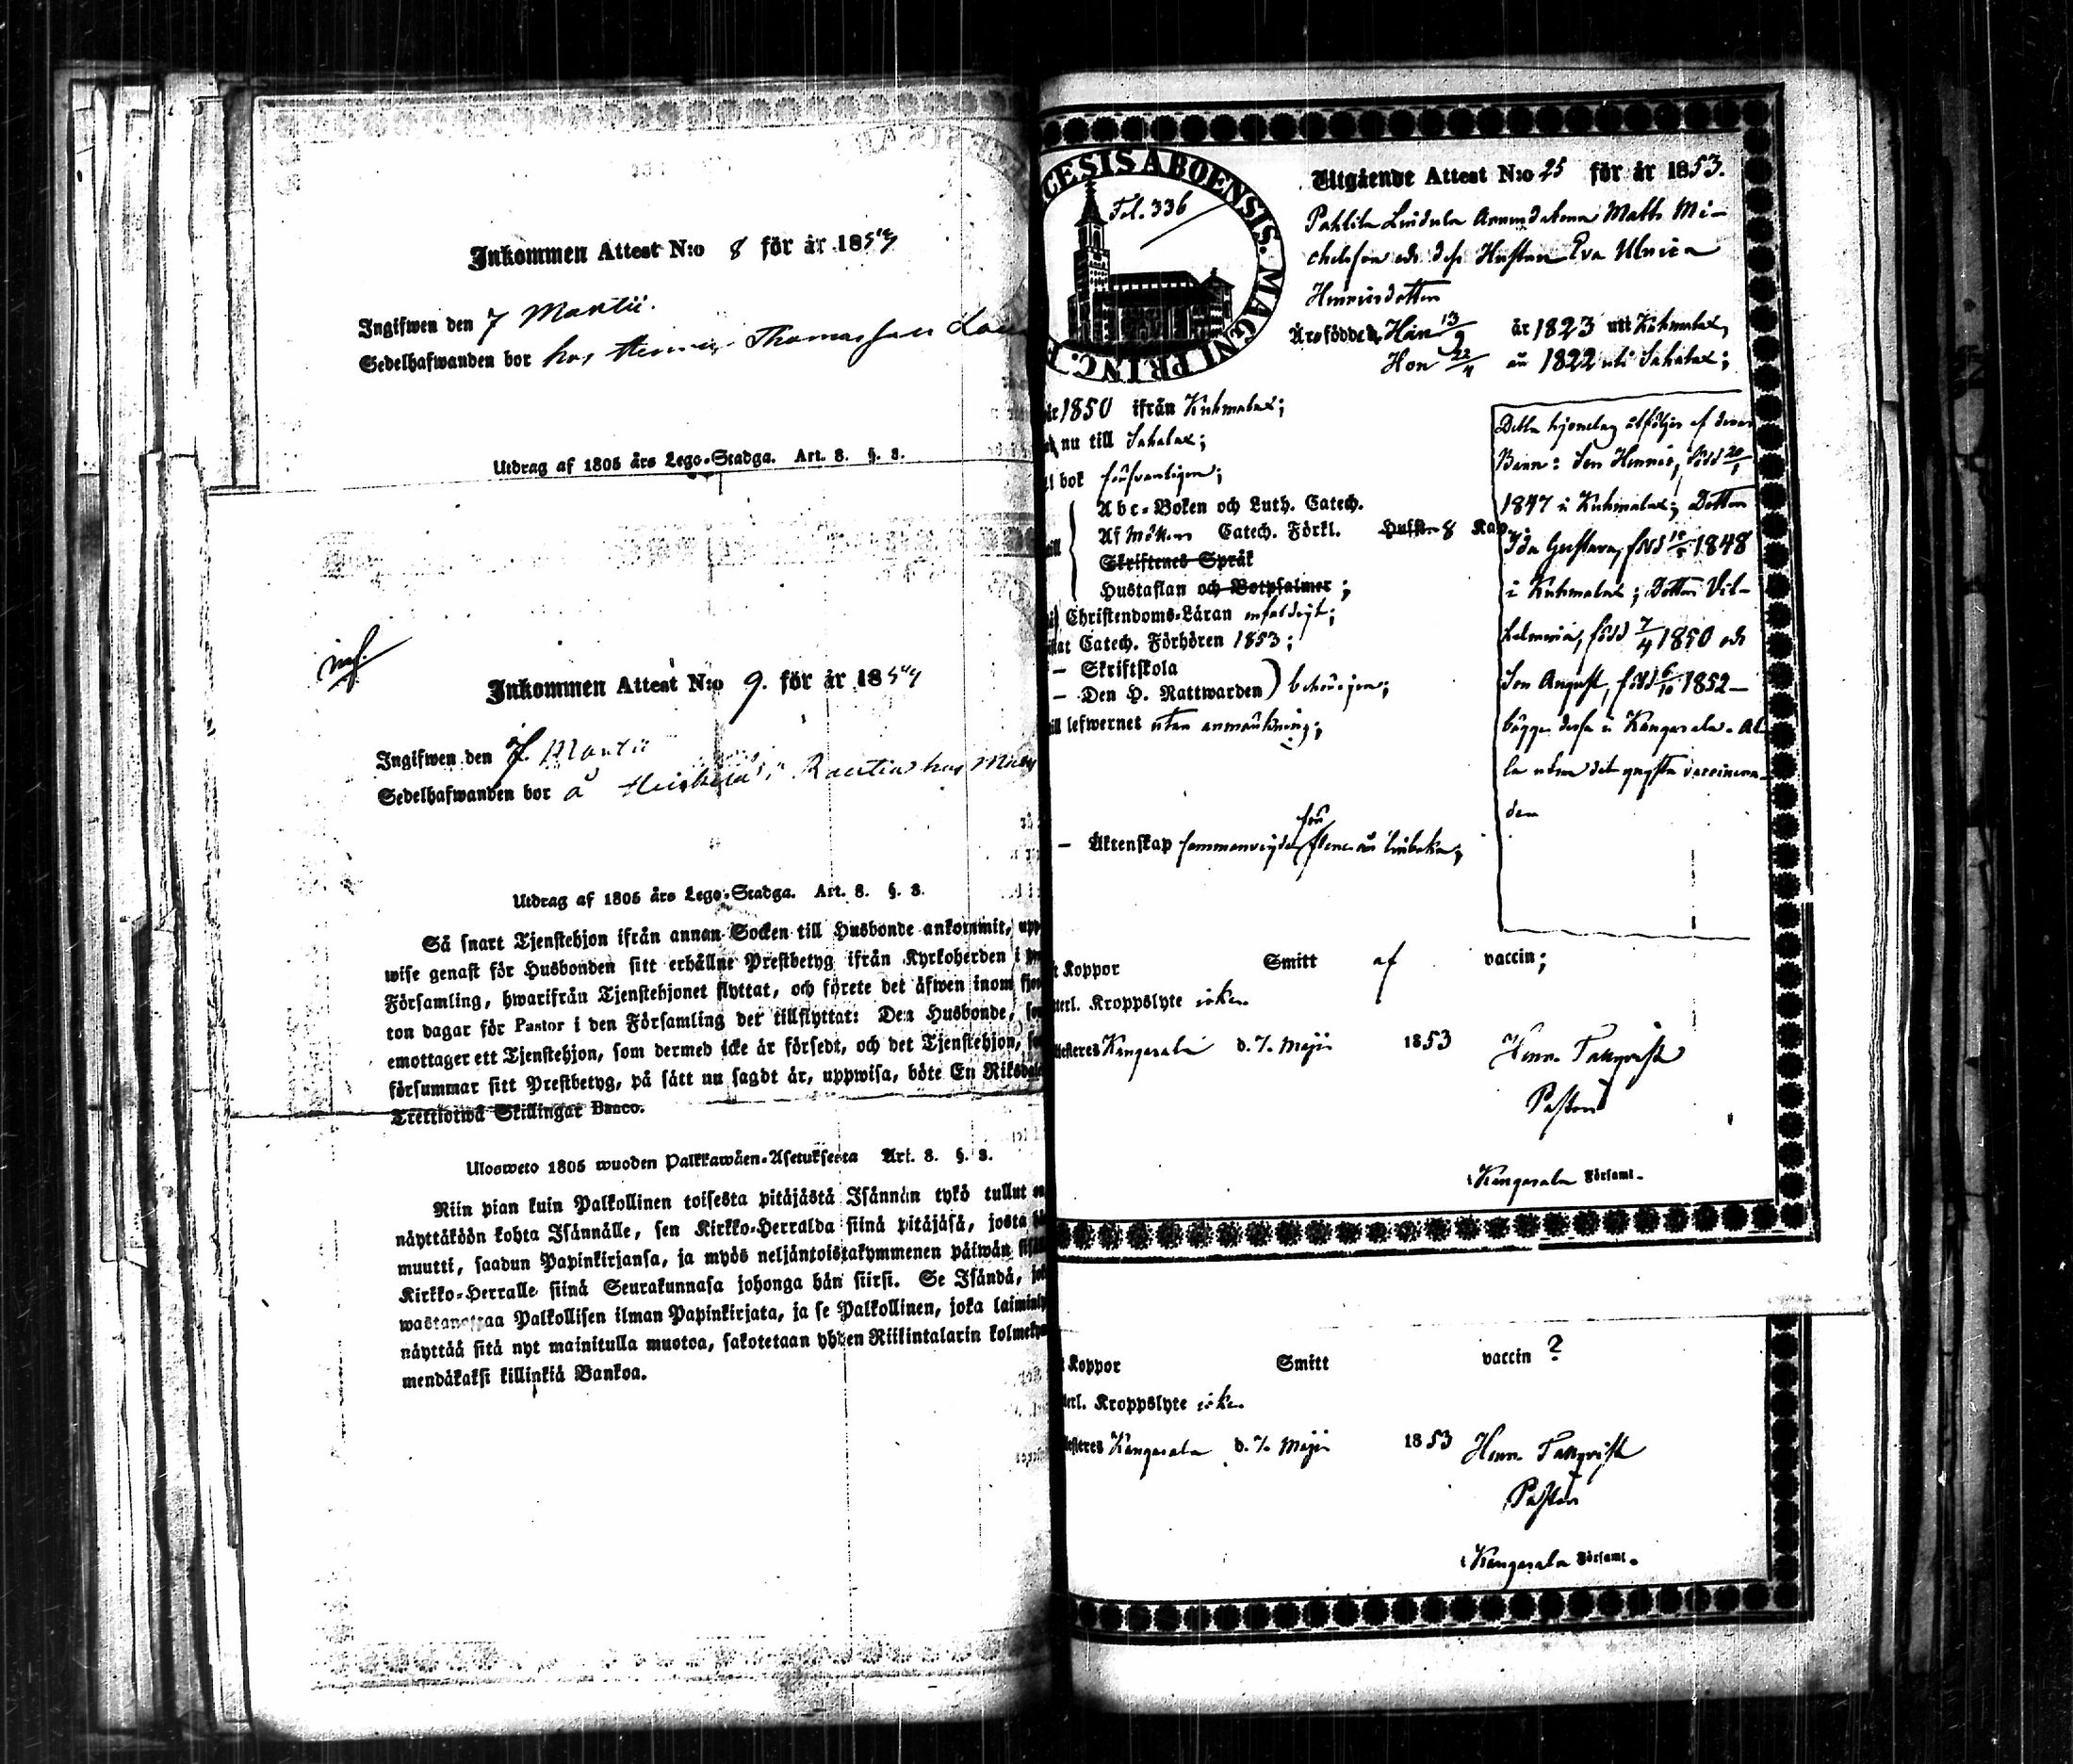 Inkommen Attest N:o 8 för år 1854
Ingifwen den 7 Martii.
Sedelhafwanden bor hos Thomasson
Utdrag af 1805 års Lego-Stadga. Art. 8. §. 3.
Inkommen Attest N:o 9. för år 1854
Ingifwen den 7. Martii
Sedelhafwanden bor å hos
Utdrag af 1805 års Lego-Stadga. Art. 8. §. 3.
Så snart Tjenstehjon ifrån annan Socken till Husbonde ankommit, upp
wise genast för Husbonden sitt erhållne Prestbetyg ifrån Kyrkoherden i
Församling, hwarifrån Tjenstehjonet flyttat, och förete det äfwen inom fjor
ton dagar för Pastor i den Församling der tillflyttat: Den Husbonde,
emottager ett Tjenstehjon, som dermed icke är försedt, och det Tjenstehjon,
försummar sitt Prestbetyg, på sätt nu sagdt är, uppwisa, böte En Riksdaler
Trettiotwå Skillingar Banco.
Ulosweto 1805 wuoden Palkkawäen-Asetuksesta Art. 8. §. 3.
Niin pian kuin Palkollinen toisesta pitäjästä Isännän tykö tullut on
näyttäköön kohta Isännälle, sen Kirkko-Herralda siinä pitäjäsä, josta
muutti, saadun Papinkirjansa, ja myös neljäntoistakymmenen päiwän
Kirkko-Herralle siinä Seurakunnasa johonga hän siirsi. Se Isändä,
wastanottaa Palkollisen ilman Papinkirjata, ja se Palkollinen, joka
näyttää sitä nyt mainitulla muotoa, sakotetaan yhden Riikintalarin
mendäkaksi killinkiä Bankoa.
CESIS ABOENSIS. MAGNI PRINC. F
Fol. 336
Utgående Attest N:o 25 för år 1853.
Matts Mi-
chelsson och dess Hustru Eva Ulrica
Henricsdotter
Äro födde, Han 13/9 år 1823 uti Kuhmalax,
Hon 22/4 år 1822 uti Sahalax;
år 1850 ifrån Kuhmalax;
nu till Sahalax;
bok försvarligen;
Abc-Boken och Luth. Catech.
Af Catech. Förkl. Hufst. 8 Kap
Skriftenes Språk
Hustaflan och Botpsalmer;
Christendoms-Läran enfaldigt;
Catech. Förhören 1853;
- Skriftskola
- Den H. Nattwarden) behörigen;
till lefwernet utan anmärkning;
- Äktenskap sammanvigde för
Koppor Smitt af vaccin;
Kroppslyte icke.
Kangasala d. 7. Maji 1853
Henr. Tallqvist
Pastor
i Kangasala Församl.
Detta hjonelag åtföljes af deras
Barn: Son Henric, född 20/1
1847 i Kuhmalax; Dotter
Ida Gustava, född 1848
i Kuhmalax; Dotter Vil-
helmina, född 7/4 1850 och
Son August, född 6/10 1852 -
bägge desse i Kangasala. Al-
la utom det yngsta vaccinera-
de
Koppor Smitt vaccin ?
Kroppslyte icke.
Kangasala d. 7. Maji 1853 Henr. Tallqvist
Pastor
i Kangasala Församl.